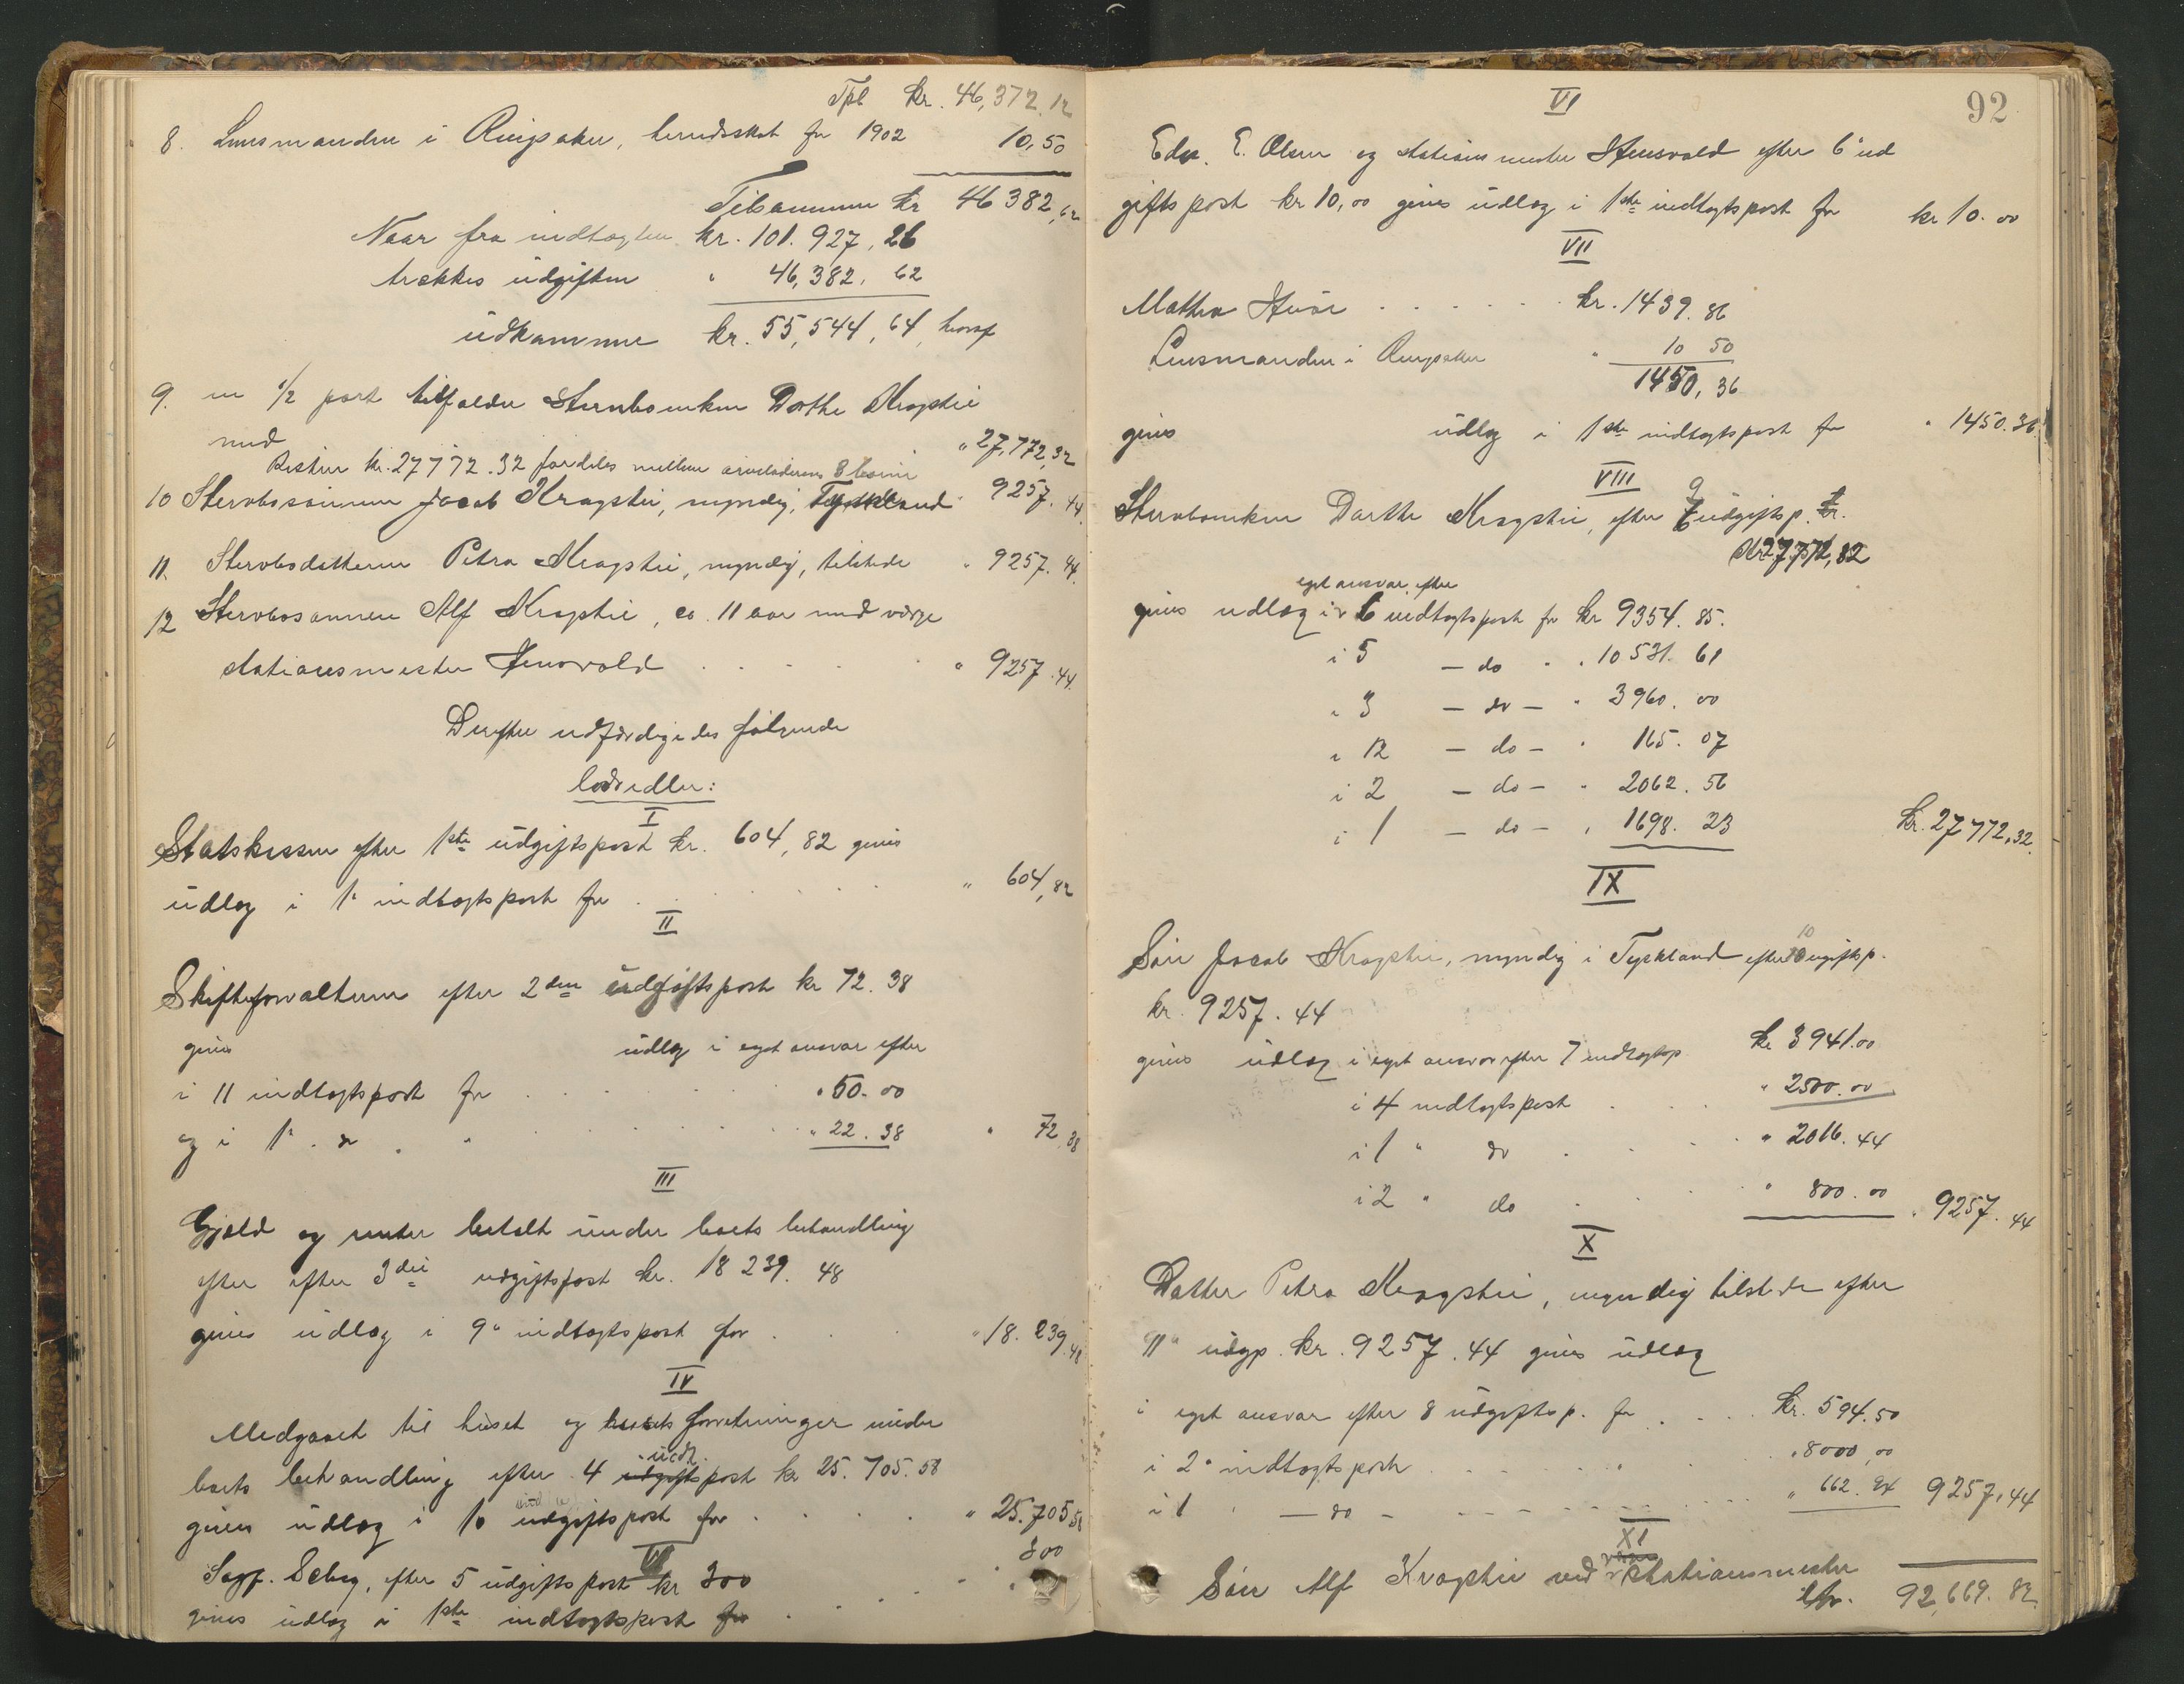 Tpt kr. 46,372.12
8. Lensmanden i Ringsaker, herredsskat for 1902 10,50
Tilsammen kr 46 382,62
Naar fra indtægten kr. 101.927,26
trækkes udgiften " 46,382.62
udkommer kr. 55,544,64, hvoraf
9. en 1/2 part tilfalder Stervboenken Dorthe Kragstie
med " 27,772,32
Resten kr. 27772.32 fordeles mellem arveladerens 3 børn
10 Stervbosønnen Jacob Kragstie, myndig, Tyskland " 9257.44
11. Stervbodatteren Petra Kragstie, myndig, tilstede " 9257.44
12 Stervbosønnen Alf Kragstie, ca. 11 aar med værge
stationsmester Stensvold . . . . " 9257.44
Derefter udfærdigedes følgende
lodsedler:
I
Statskassen efter 1ste udgiftspost kr. 604,82 gives
udlæg i 1" indtægtspost for . . . . " 604,82
II
Skifteforvalteren efter 2den udgiftspost kr 72.38
gives udlæg i eget ansvar efter
i 11 indtægtspost for . . . . " 50.00
og i 1" . do . " . . . . " 22.38 " 72,38
III
Gjæld og renter betalt under boets behandling
efter efter 3die udgiftspost kr. 18 239.48
gives udlæg i 9" indtægtspost for . . . " 18.239.48
IV
Medgaaet til huset og husets forretninger under
udg.
boets behandling efter 4 udgiftspost kr 25.705.58
gives udlæg i 10 udgiftspost for . . . . " 25.705.58
V
Sagf. Seberg, efter 5 udgiftspost kr 300 300
gives udlæg i 1ste indtægtspost for . . .
92
VI
Edv. E. Olsen og stationsmester Stensvold efter 6" ud
giftspost kr 10,00 gives udlæg i 1ste indtægtspost for kr 10.00
VII
Mathea . . . . . kr. 1439.86
Lensmanden i Ringsaker " 10 50
1450,36
gives udlæg i 1ste indtægtspost for " 1450.36
VIII
9
Stervboenken Dorthe Kragstie, efter udgiftsp. kr.
kr 27,772,32
eget ansvar efter
gives udlæg i 6 indtægtspost for kr 9354.85.
i 5 – do " " 10 531.61
" 3 – do – " 3960.00
" 12 – do – " 165.07
i 2 – do – " 2062.56
i 1 – do – " 1698.23 kr. 27 772,32.
IX
10
Søn Jacob Kragstie, myndig i Tyskland efter udgiftsp.
kr. 9257.44
gives udlæg i eget ansvar efter 7 indtægtsp kr 3941.00
i 4 indtægtspost . . . " 2500.00
i 1 " do . . . " 2016.44
i 2 " do . . . " 800.00 " 9257.44
X
Datter Petra Kragstie, myndig tilstede efter
11" udgp. kr. 9257.44 gives udlæg
i eget ansvar efter 8 udgiftsp. for . . . kr. 594.50
i 2" indtægtspost . . . . " 8000,00
i 1 " – do – . . . " 662.94 9257,44
XI
Søn Alf Kragstie ved værge stationsmester
ltr. 92,669.82